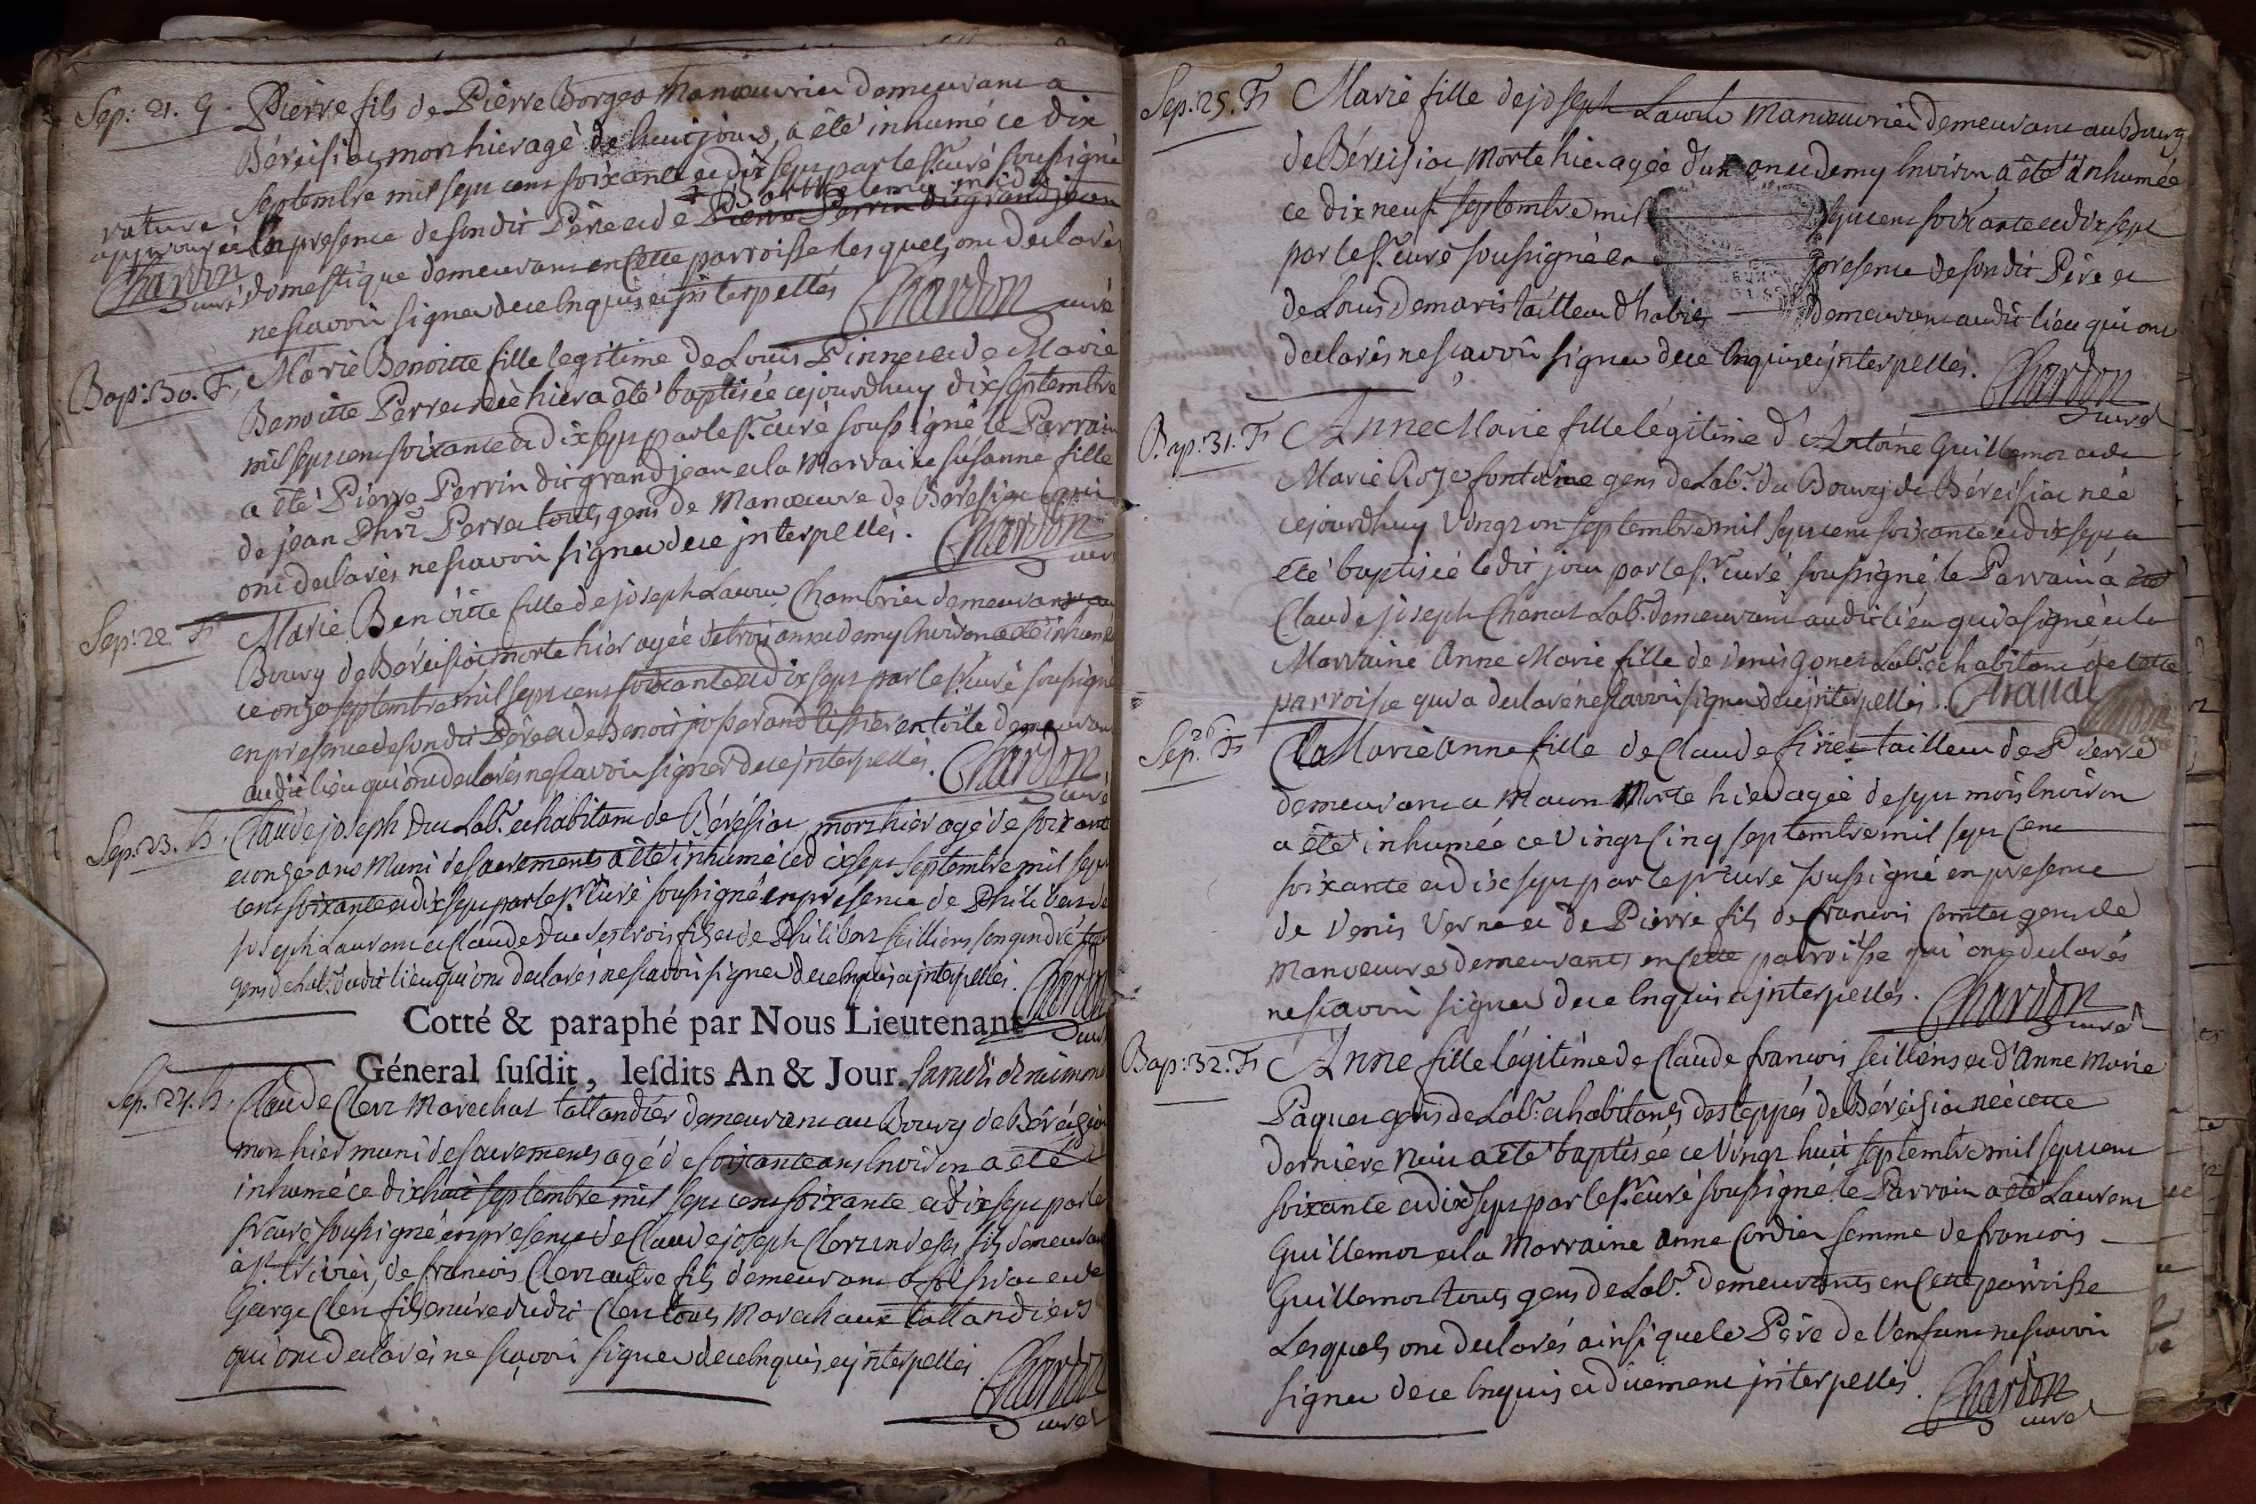 Sep: 21. G. Pierre fils de Pierre Borges Manœuvrier demeurant a
Béreisiat mort hier agé de huit jours, a été inhumé ce dix
septembre mil sept cent soixante et dix sept par le Sr. curé soussigné
Barthelemy
rature approuvée Chardon curé
En presence de son dit Père et de Pierre Perrin dit grand jean
domestique demeurant en Cette parroisse lesquels ont declarés
ne scavoir signer de ce Enquis et jnterpellés Chardon curé
Bap: 30. F, Marie Benoitte fille legitime de Louis Pinne et de Marie
Benoitte Perret née hier a été baptisée cejourdhuy dix septembre
mil sept cent soixante et dix sept par le Sr. curé soussigné le Parrain
a été Pierre Perrin dit grand jean et la Marraine susanne fille
de jean Perret touts gens de Manœuvre de Beresiat
ont declarés ne scavoir signer de ce jnterpellés. Chardon curé
Sep: 22. F Marie Benoitte fille de joseph Laurent Chambrier demeurant au
Bourg de Béreisiat morte hier agée de trois ans et demy Environ a été inhumée
ce onze septembre mil sept cent soixante et dix sept par le Sr. curé soussigné
en presence de son dit Père et de Benoit josserand tissier en toile demeurant
audit lieu qui ont declarés ne scavoir signer de ce jnterpellés. Chardon curé
Sep: 23. h. Claude joseph Duc Labr. et habitant de Bérésiat mort hier agé de soixante
et onze ans Muni des sacrements a été inhumé le dix sept septembre mil sept
cent soixante et dix sept par le Sr. Curé soussigné en presence de Philibert de
joseph Laurent et Claude Duc ses trois fils et de Philibert seillieres son gendre
gens de Labr. dudit lieu qui ont declarés ne scavoir signer de ce Enquis et jnterpellés. Chardon curé
Cotté & paraphé par Nous Lieutenant
Géneral susdit, lesdits An & Jour.
Sep. 24. h. Claude Clerc Marechal tallandier demeurant au Bourg de Béreisiat
mort hier muni des sacrements agé de soixante ans Environ a été
inhumé ce dix huit septembre mil sept cent soixante et dix sept par le
Sr. curé soussigné en presence de Claude joseph Clerc un de ses fils demeurant
à St. trivier, de francois Clerc autre fils demeurant a foissiat et de
George Clerc fils encore dudit Clerc touts Marechaux tallandiers
qui ont declarés ne sçavoir signer de ce Enquis et jnterpellés Chardon curé
Sep: 25. F, Marie fille de joseph Laurent Manœuvrier demeurant au Bourg
de Béreisiat Morte hier agée d'un an et demy Environ a été inhumée
ce dix neuf septembre mil sept cent soixante et dix sept
par le Sr. curé soussigné en presence de son dit Père et
de Louis Demaris tailleur d'habits demeurant audit lieu qui ont
declarés ne scavoir signer de ce Enquis et jnterpellés. Chardon curé
Bap: 31. F, Anne Marie fille légitime d'Antoine Guillemot et de
Marie Roze fontaine gens de Labr. du Bourg de Béreisiat née
cejourdhuy Vingt un septembre mil sept cent soixante et dix sept a
été baptisée ledit jour par le Sr. curé soussigné, le Parrain a été
Claude joseph Chanal Labr. demeurant audit lieu qui a signé et la
Marraine Anne Marie fille de Denis Gonet Labr. et habitant de Cette
parroisse qui a declaré ne scavoir signer de ce jnterpellés. Chanal Chardon
Sep: 26. F, Marie Anne fille de Claude finet tailleur de Pierre
demeurant a Macon Morte hier agée de sept mois Environ
a été inhumée ce Vingt Cinq septembre mil sept Cent
soixante et dix sept par le Sr. curé soussigné en presence
de Denis Verne et de Pierre fils de francois Comte gens de
Manœuvres demeurants en Cette parroisse qui ont declarés
ne scavoir signer de ce Enquis et jnterpellés. Chardon curé
Bap: 32. F, Anne fille légitime de Claude francois seilliéres et d'Anne Marie
Paquet gens de Labr. et habitants des teppes de Béreisiat née cette
dernière Nuit a été baptisée ce Vingt huit septembre mil sept cent
soixante et dix sept par le Sr. curé soussigné, le Parrain a été Laurent
Guillemot et la Marraine Anne Cordier femme de francois
Guillemot touts gens de Labr. demeurants en Cette parroisse
Lesquels ont declarés ainsi que le Père de l'enfant ne scavoir
signer de ce Enquis et duement jnterpellés. Chardon curé